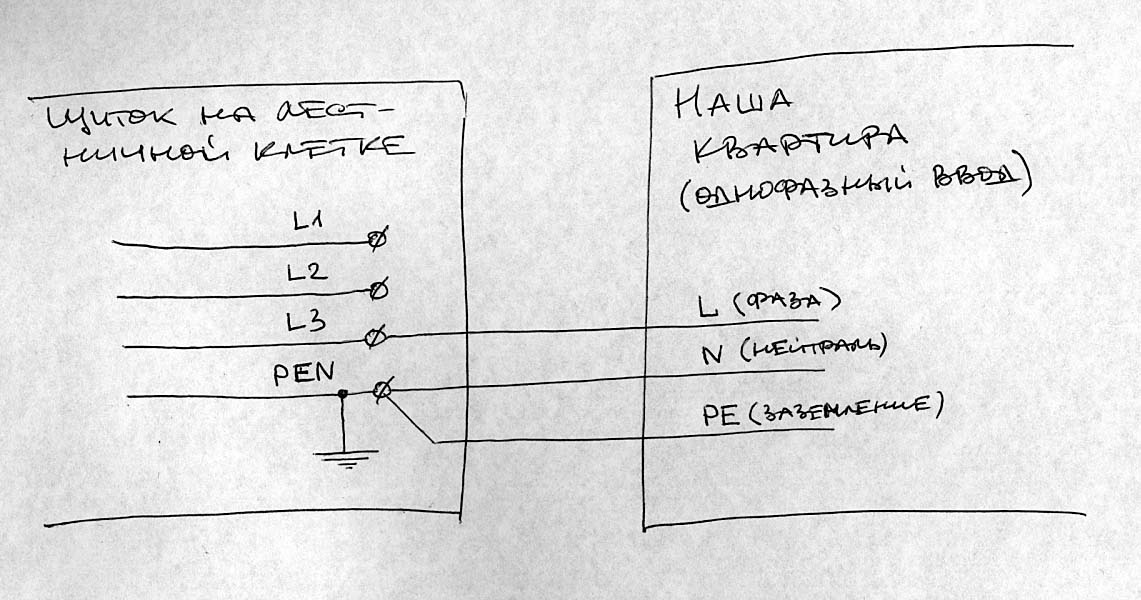 ЩИТОК НА ЛЕСТ-
НИЧНОЙ КЛЕТКЕ
L1
L2
L3
PEN
НАША
КВАРТИРА
(ОДНОФАЗНЫЙ ВВОД)
L (ФАЗА)
N (НЕЙТРАЛЬ)
PE (ЗАЗЕМЛЕНИЕ)